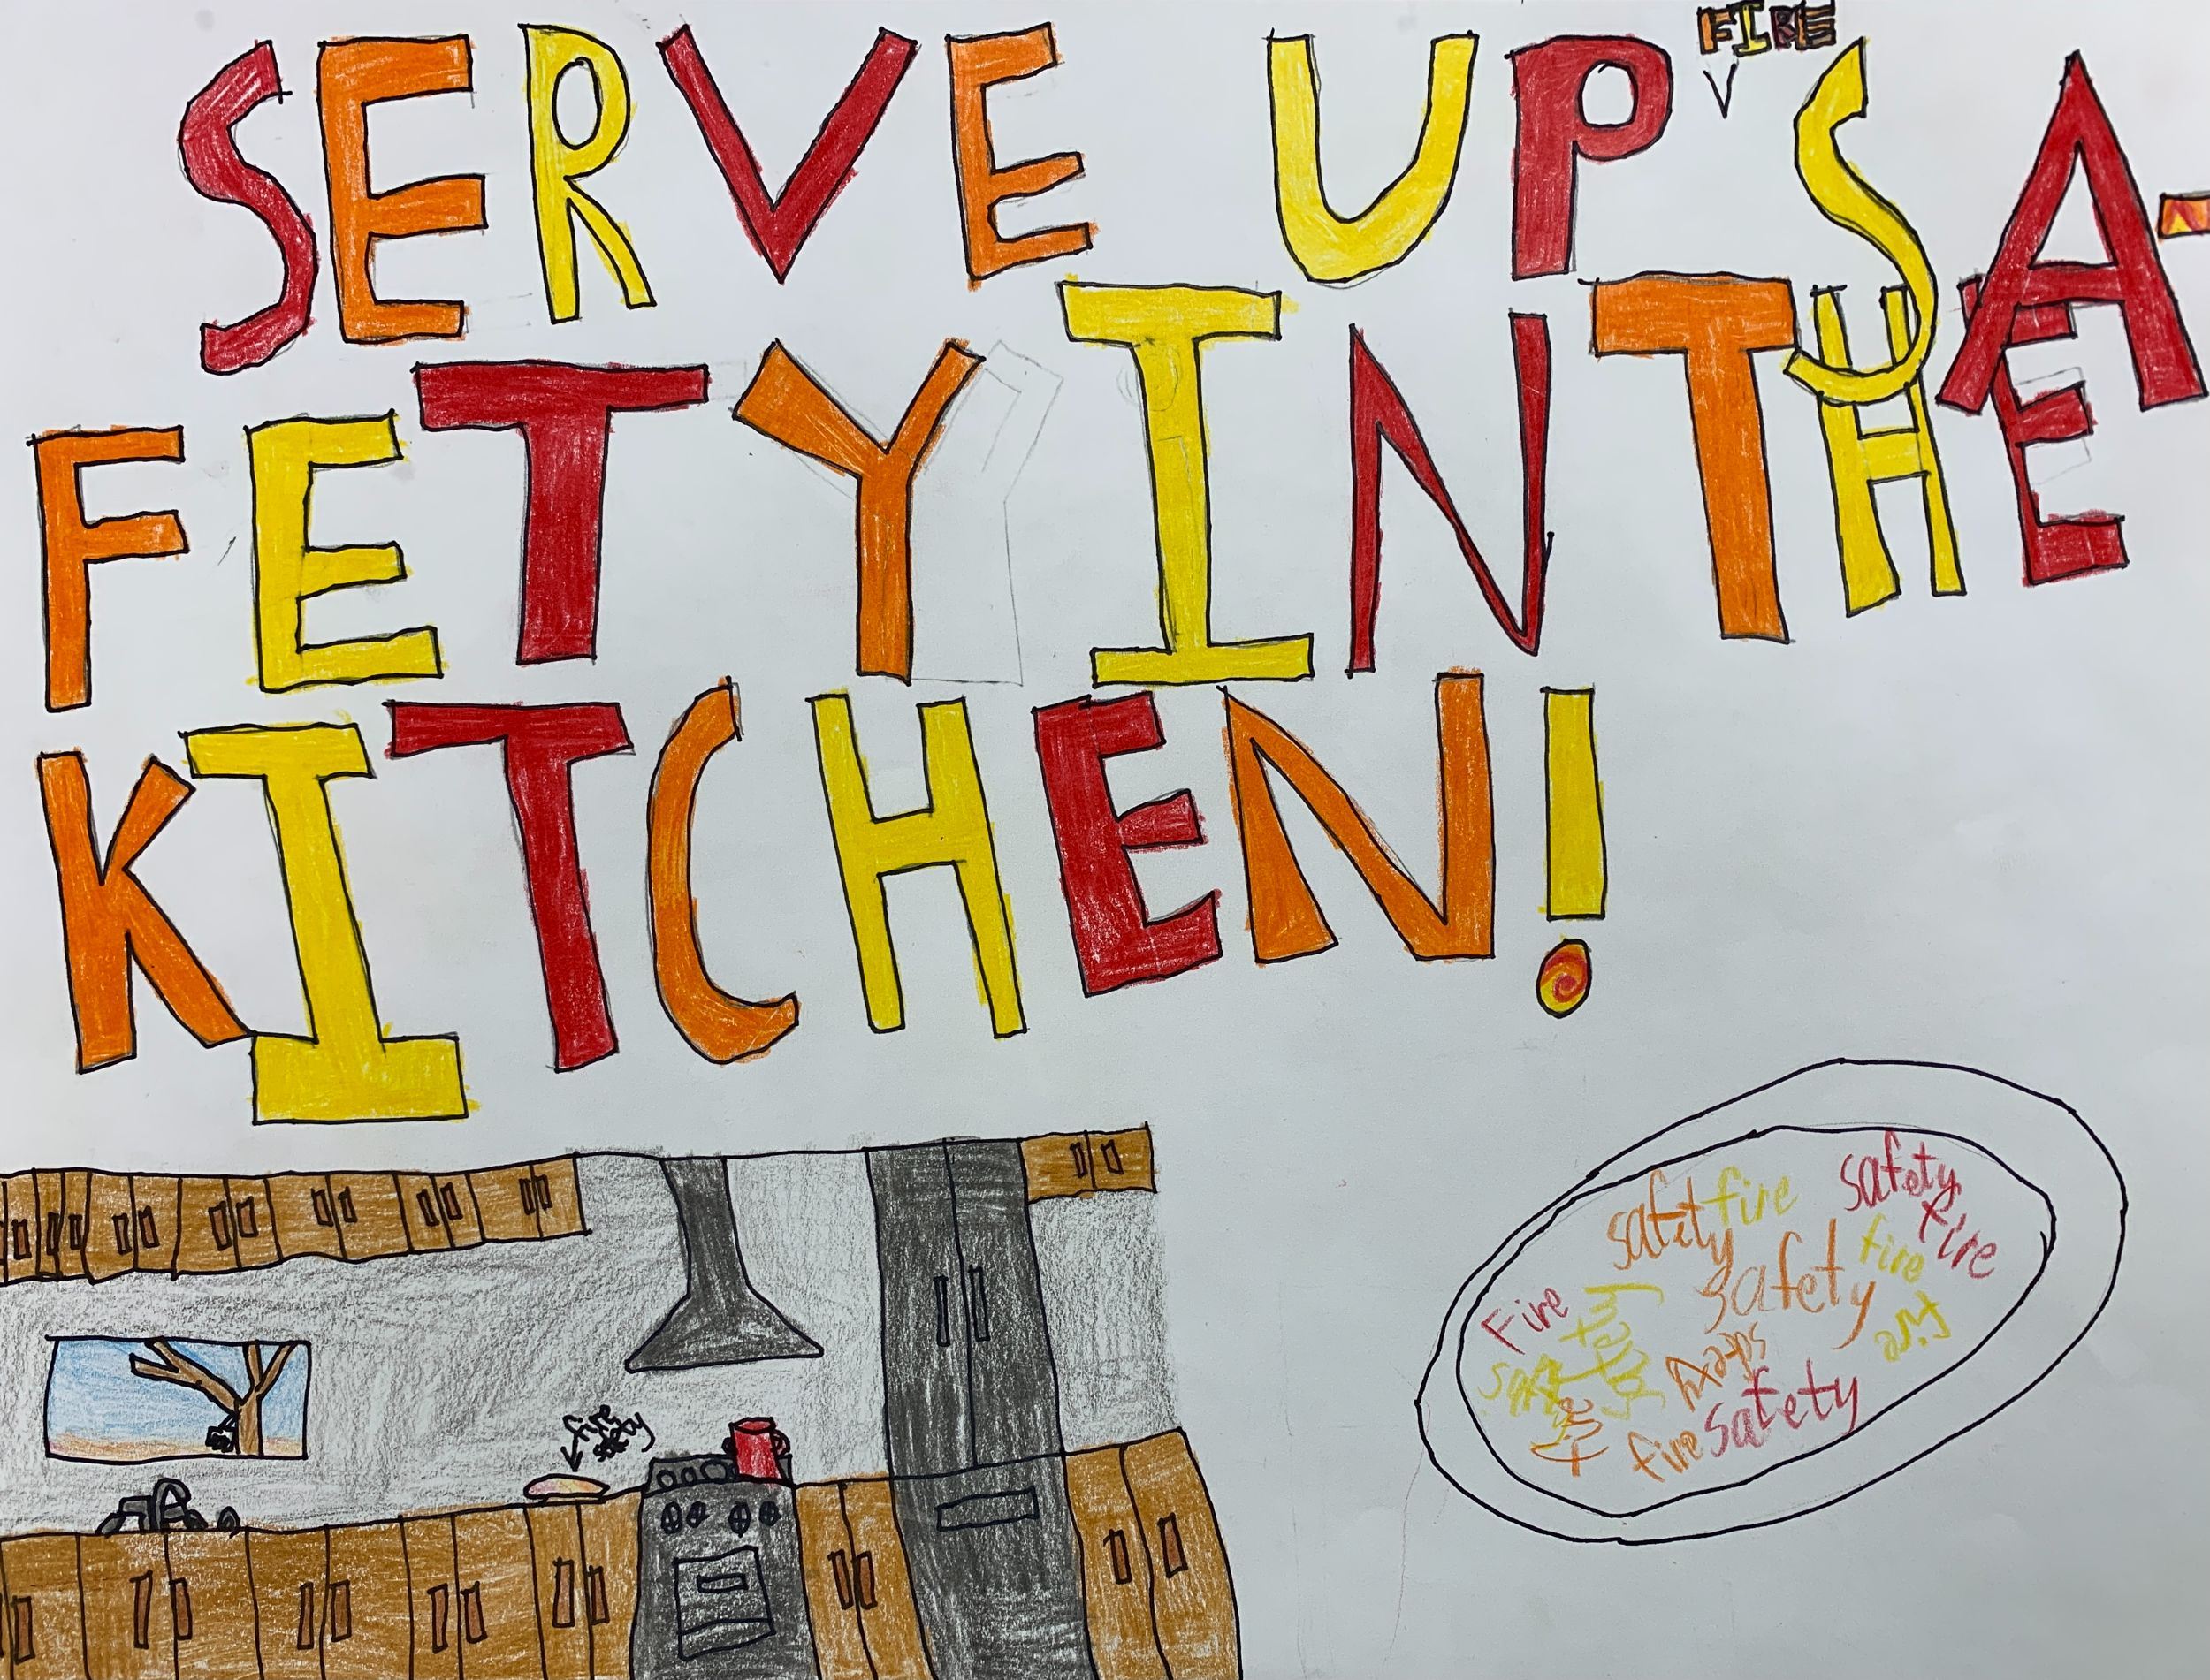 FIRE
SERVE UP SA-
FETY IN THE
KITCHEN!
safety fire safety
fire
fire
safety
Fire
safety
fire
safety
safety
fire safety
fire
fire
safety